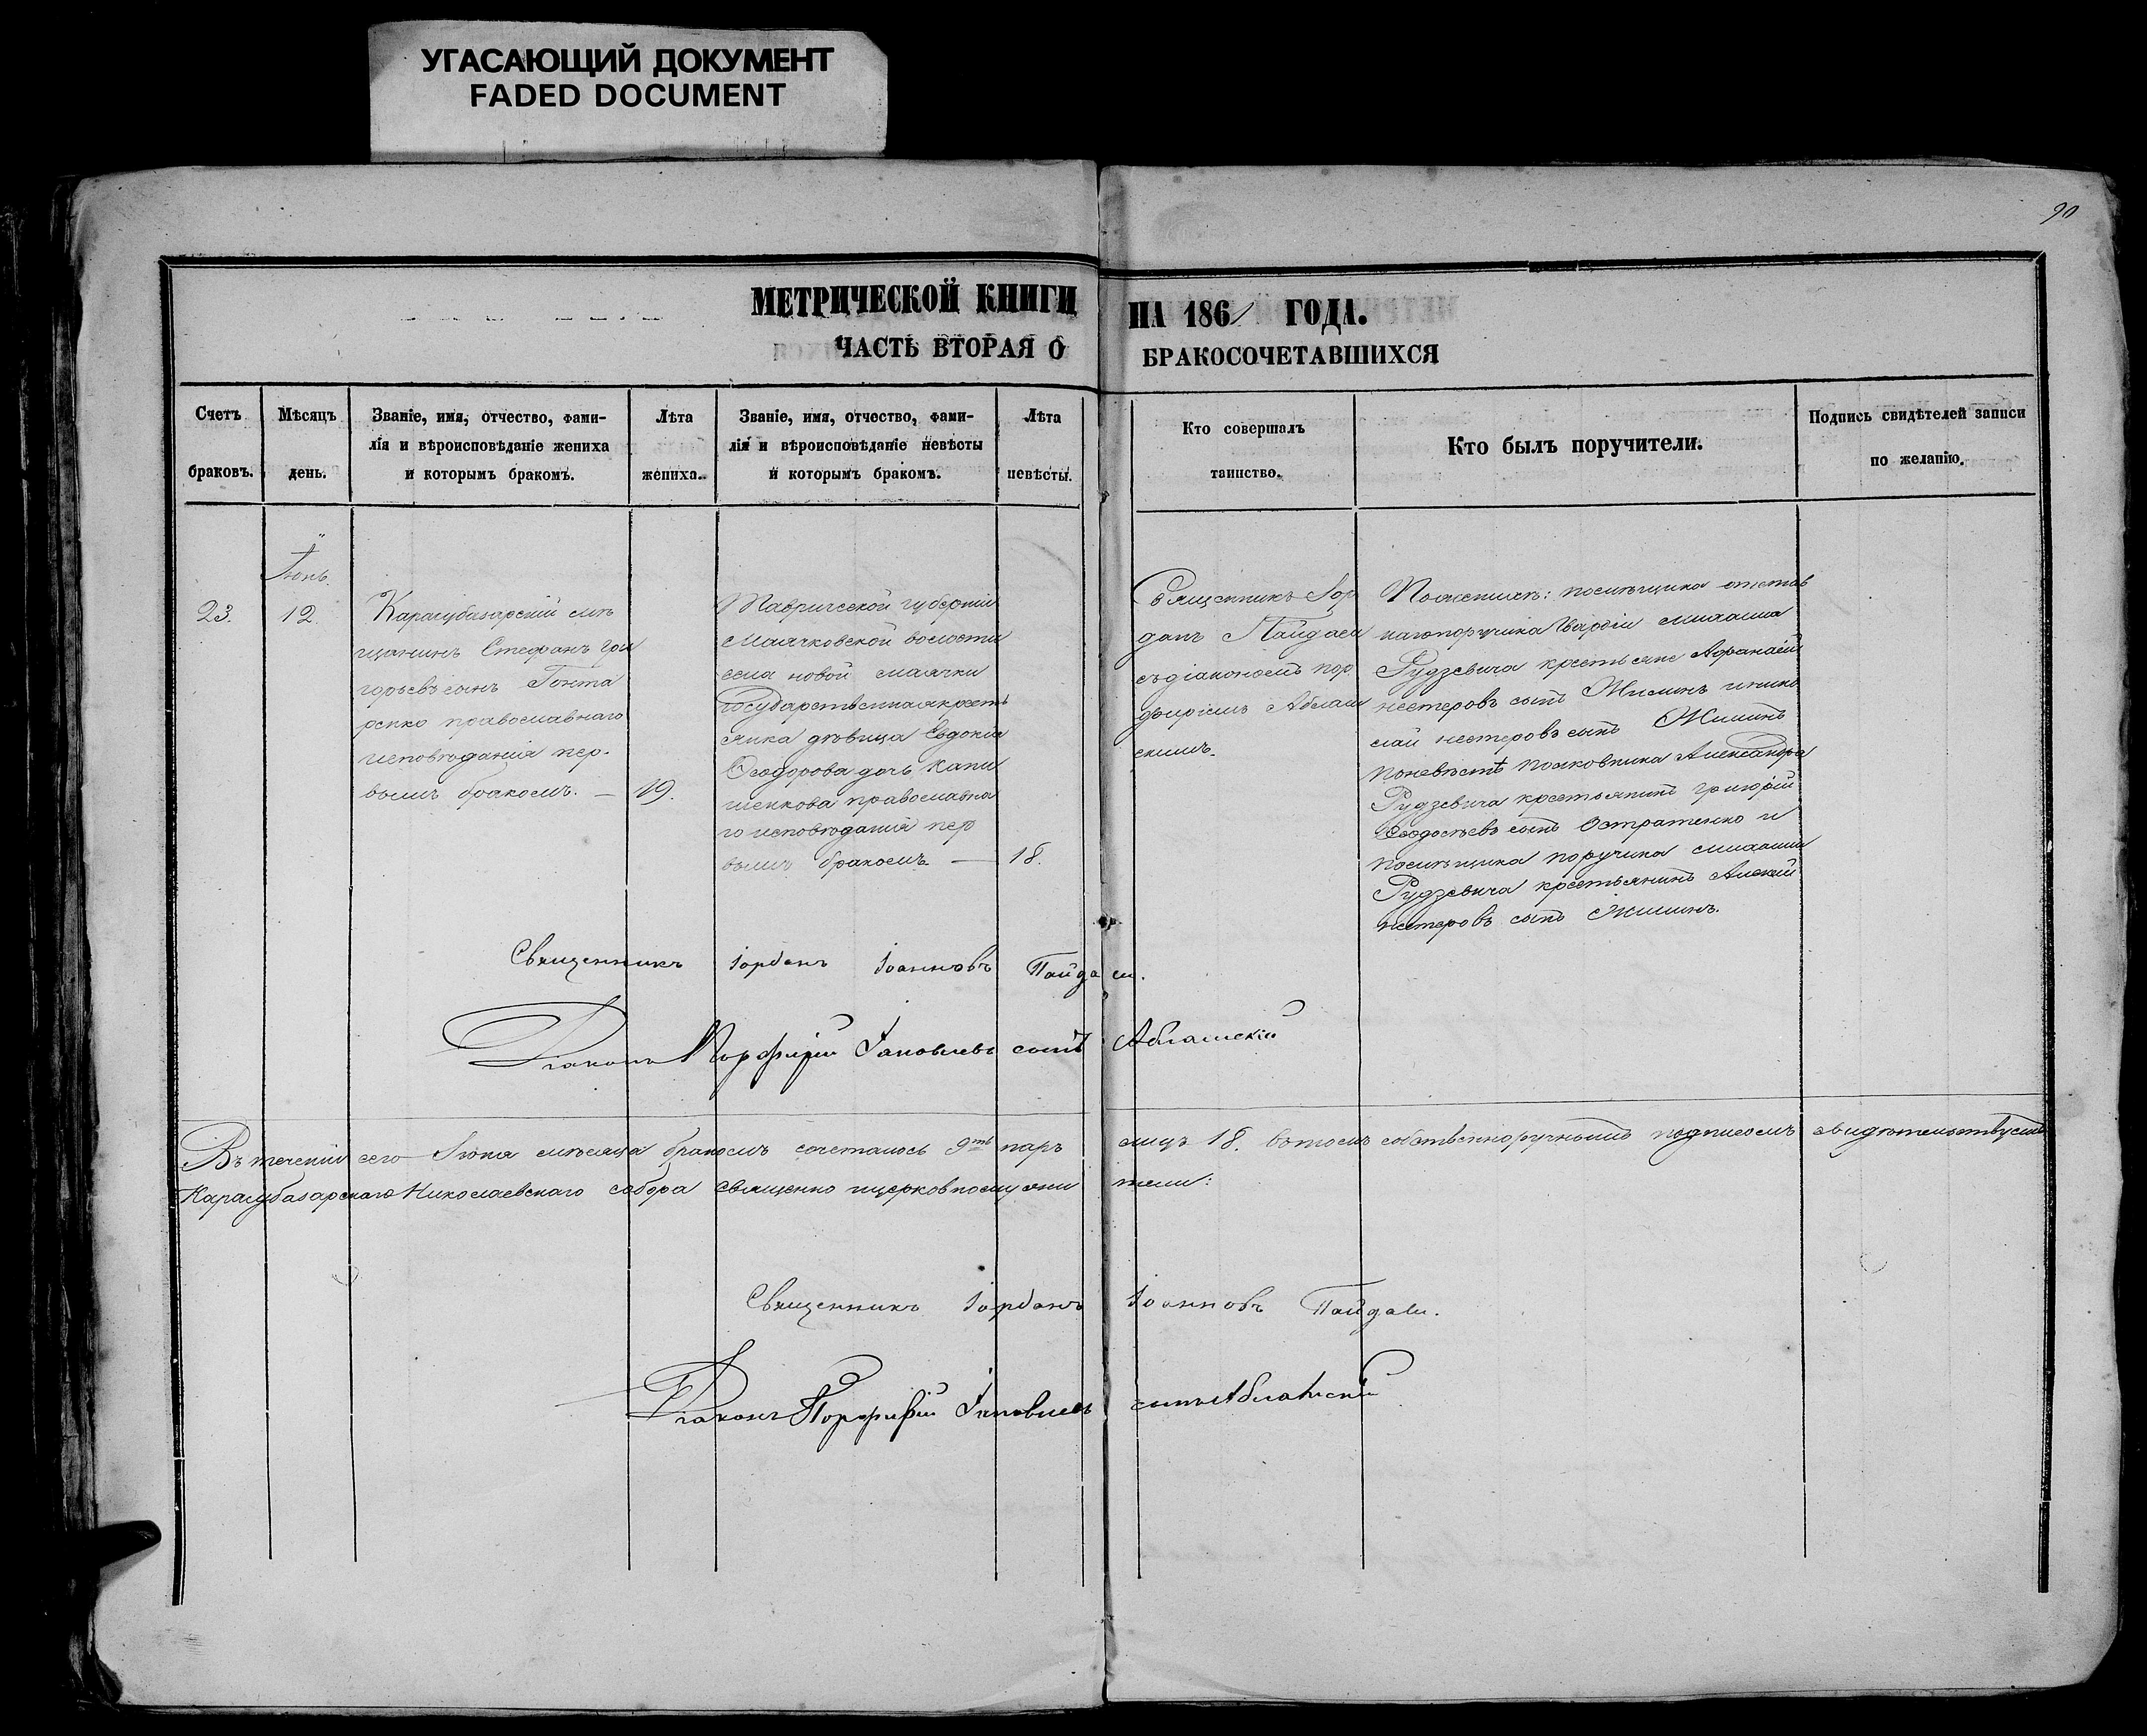 УГАСАЮЩИЙ ДОКУМЕНТ
FADED DOCUMENT
90
МЕТРИЧЕСКОЙ КНИГИ НА 1861 ГОДА.
ЧАСТЬ ВТОРАЯ О БРАКОСОЧЕТАВШИХСЯ
Счетъ
браковъ.
Мѣсяцъ
день.
Званіе, имя, отчество, фами-
лія и вѣроисповѣданіе жениха
и которымъ бракомъ.
Лѣта
жениха.
Званіе, имя, отчество, фами-
лія и вѣроисповѣданіе невѣсты
и которымъ бракомъ.
Лѣта
невѣсты.
Кто совершалъ
таинство.
Кто былъ поручители.
Подпись свидѣтелей записи
по желанію.
23.
Іюнь.
12
Карасубазарскій мѣ
щанинъ Стефанъ Гри
горьевъ сынъ Гонта
ренко православнаго
исповѣданія пер-
вымъ бракомъ. —
19.
Таврической губерніи
Маячковской волости
села новой маячки
государственная крестъ
янка дѣвица Евдокія
Ѳеодорова дочь
православна
го исповѣданія пер
вымъ бракомъ —
18.
Священникъ Іор
данъ Пайдаси
съ діакономъ пор
фиріемъ Аблаш
скимъ.
По женихѣ: помѣщика отстав
наго поручика Гвардіи михаила
Рудзевича крестьяне Афанасій
нестеровъ сынъ Жилинъ и нико
лай нестеровъ сынъ Жилинъ
по невѣстѣ полковника Александра
Рудзевича крестьянинъ григорій
Ѳеодосѣевъ сынъ Остратенко и
помѣщика поручика михаила
Рудзевича крестьянинъ Алексій
нестеровъ сынъ Жилинъ.
Священникъ Іорданъ Іоанновъ Пайдаси.
Діаконъ Порфирій Іаковлевъ сынъ Аблашскій
Въ теченіи сего Іюня мѣсяца бракомъ сочеталось 9ть паръ лицъ 18. въ томъ собственноручнымъ подписомъ свидѣтельствуемъ
Карасубазарскаго Николаевскаго собора священно ицерковнослужи тели:
Священникъ Іорданъ Іоанновъ Пайдаси.
Діаконъ Порфирій Іаковлевъ сынъ Аблашскій